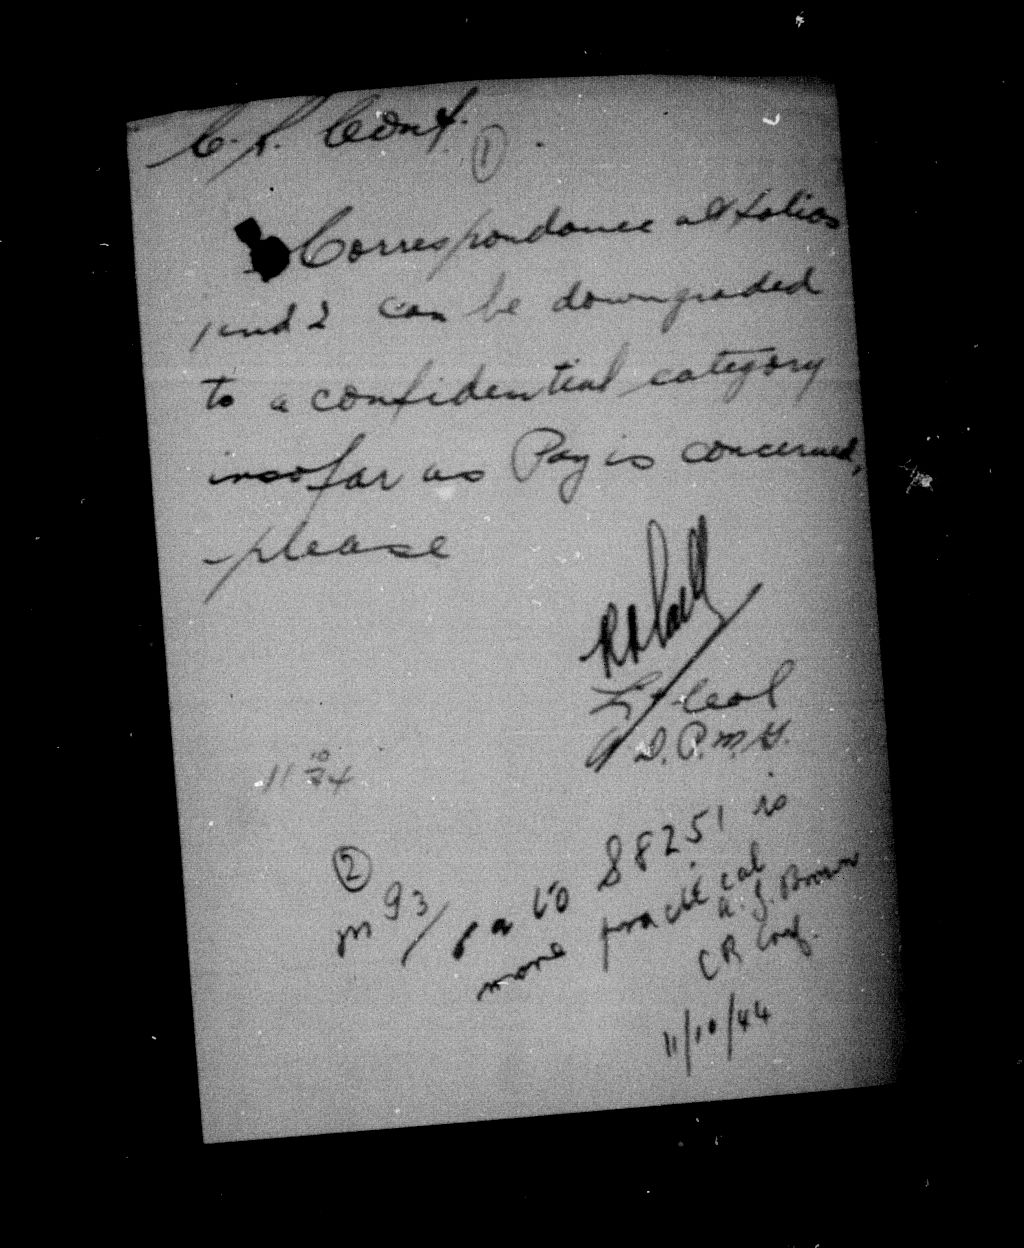 C.R. Conf.
①
Correspondance at folios
1 and 2 can be downgraded
to a confidential category
insofar as Pay is concerned,
please
Lt-Col
D.P.M.G.
11 10/44
②
M 93/ pa to 88251 is
more practical
A. J. Brown
CR Conf.
11/10/44